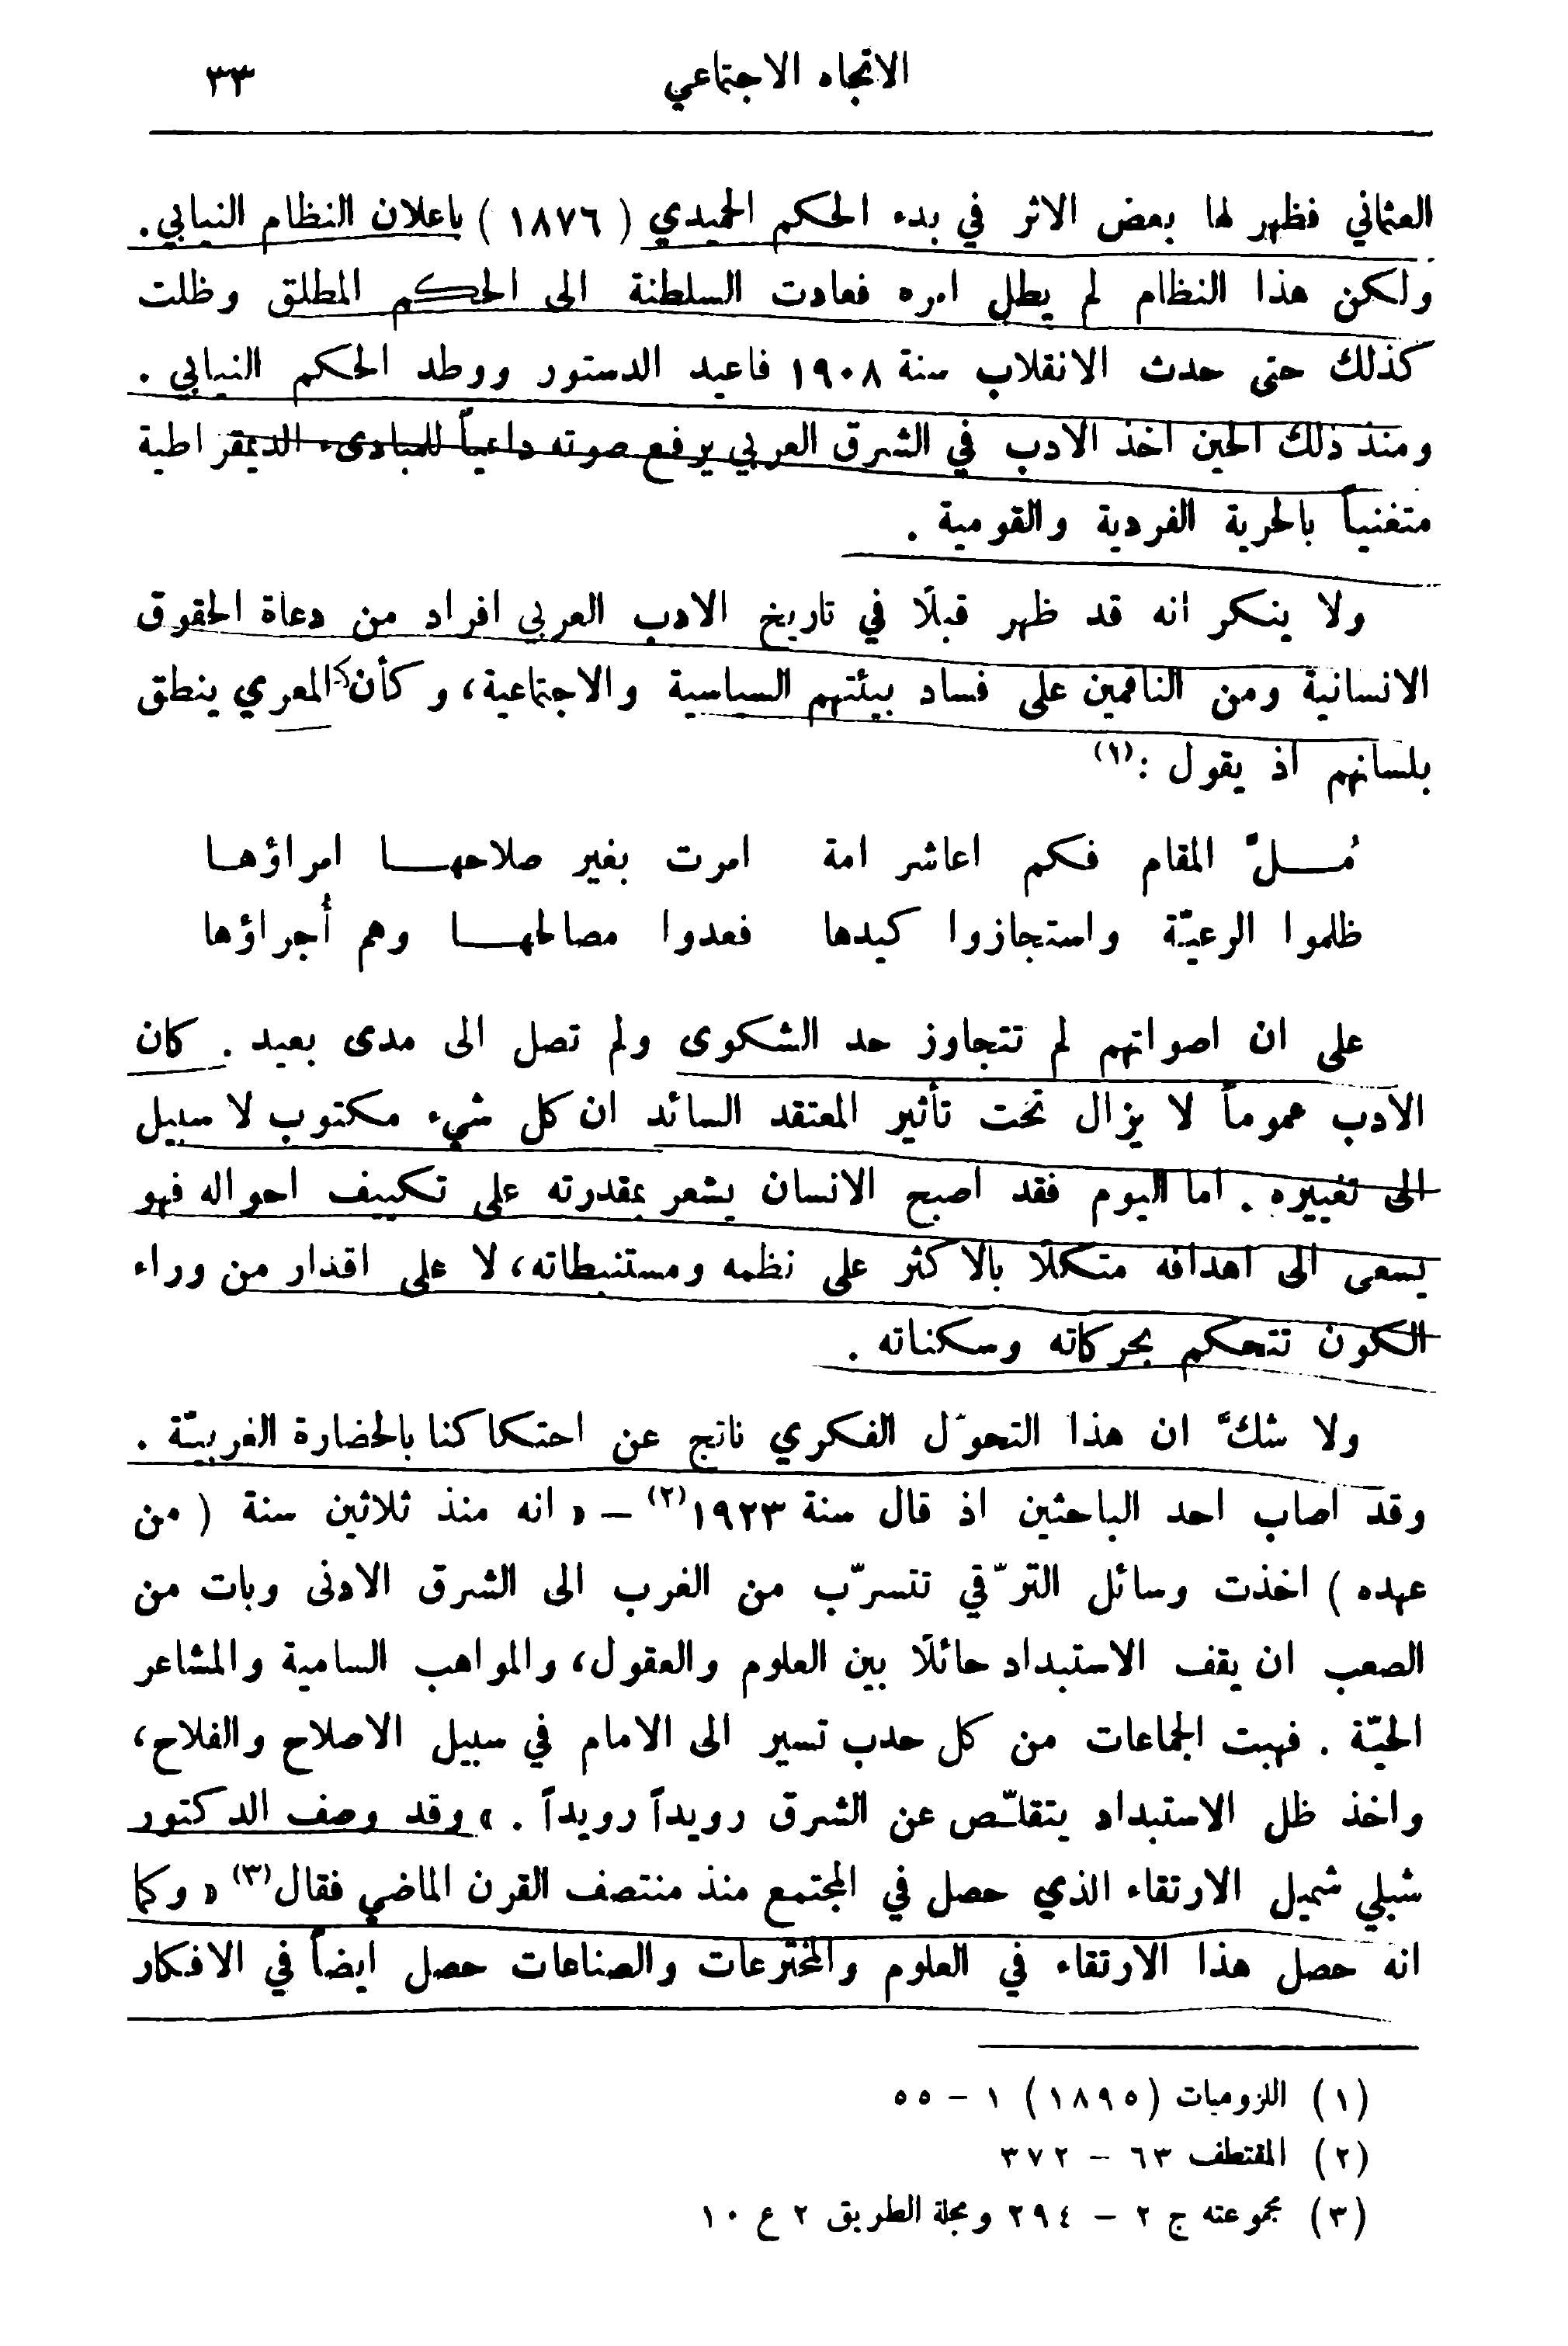 الاتجاه الاجتماعي ٣٣
العثماني فظهر لها بعض الاثر في بدء الحكم الحميدي ( ١٨٧٦ ) باعلان النظام النيابي .
ولكن هذا النظام لم يطل امره فعادت السلطنة الى الحكم المطلق وظلت
كذلك حتى حدث الانقلاب سنة ١٩٠٨ فاعيد الدستور ووطد الحكم النيابي .
ومنذ ذلك الحين اخذ الادب في الشرق العربي يرفع صوته داعياً للمبادىء الديمقراطية
متغنياً بالحرية الفردية والقومية .
ولا ينكر انه قد ظهر قبلًا في تاريخ الادب العربي افراد من دعاة الحقوق
الانسانية ومن الناقمين على فساد بيئتهم السياسية والاجتماعية، وكأن المعري ينطق
بلسانهم اذ يقول :(١)
مُـلَّ المقام فكم اعاشر امة امرت بغير صلاحهـا امراؤهـا
ظلموا الرعيّة واستجازوا كيدها فعدوا مصالحهـا وهم أُجراؤها
على ان اصواتهم لم تتجاوز حد الشكوى ولم تصل الى مدى بعيد . كان
الادب عموماً لا يزال تحت تأثير المعتقد السائد ان كل شيء مكتوب لا سبيل
الى تغييره . اما اليوم فقد اصبح الانسان يشعر بمقدرته على تكييف احواله فهو
يسعى الى اهدافه متكلًا بالاكثر على نظمه ومستنبطاته، لا على اقدار من وراء
الكون تتحكم بحركاته وسكناته .
ولا شكَّ ان هذا التحوّل الفكري ناتج عن احتكاكنا بالحضارة الغربيّة .
وقد اصاب احد الباحثين اذ قال سنة ١٩٢٣(٢) – « انه منذ ثلاثين سنة ( من
عهده ) اخذت وسائل الترّقي تتسرّب من الغرب الى الشرق الادنى وبات من
الصعب ان يقف الاستبداد حائلًا بين العلوم والعقول، والمواهب السامية والمشاعر
الحيّة . فهبت الجماعات من كل حدب تسير الى الامام في سبيل الاصلاح والفلاح،
واخذ ظل الاستبداد يتقلّـص عن الشرق رويداً رويداً . » وقد وصف الدكتور
شبلي شميل الارتقاء الذي حصل في المجتمع منذ منتصف القرن الماضي فقال(٣) « وكما
انه حصل هذا الارتقاء في العلوم والمخترعات والصناعات حصل ايضاً في الافكار
(١) اللزوميات (١٨٩٥) ١ – ٥٥
(٢) المقتطف ٦٣ – ٣٧٢
(٣) مجموعته ج ٢ – ٢٩٤ ومجلة الطريق ٢ ع ١٠